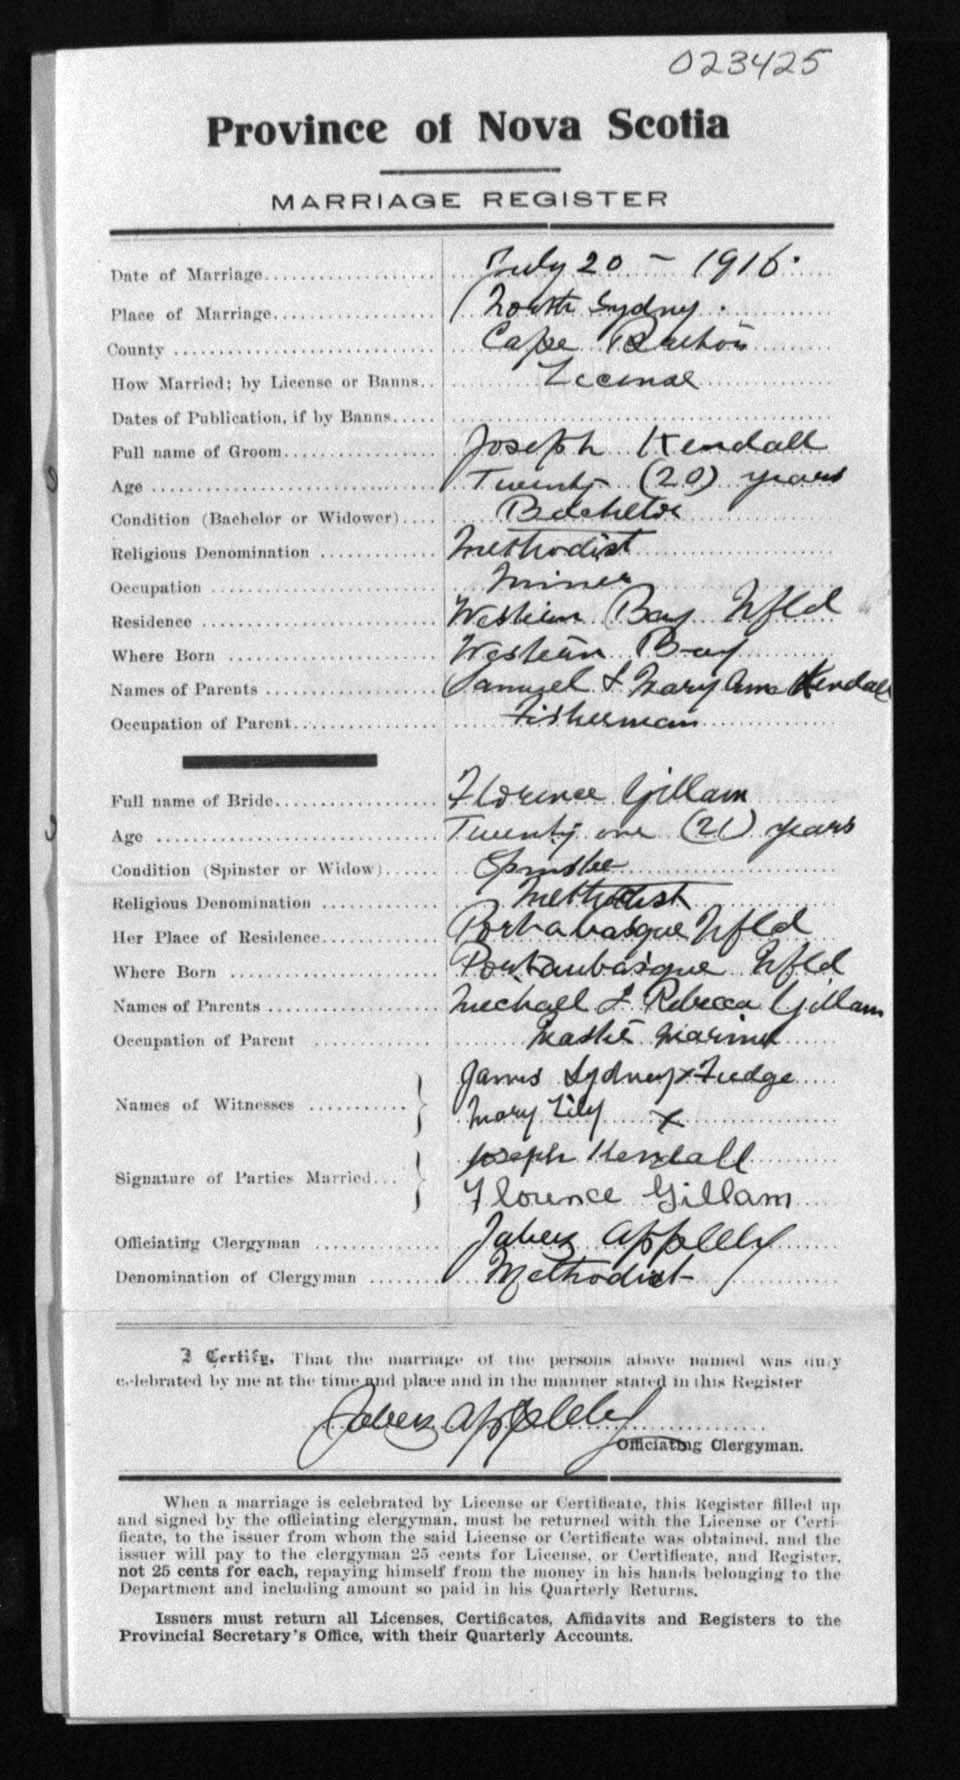 023425
Province of Nova Scotia
MARRIAGE REGISTER
Date of Marriage.................... July 20 - 1916.
Place of Marriage................... North Sydney.
County .............................. Cape Breton
How Married; by License or Banns.. License
Dates of Publication, if by Banns.....
Full name of Groom.................. Joseph Kendall
Age ................................. Twenty (20) years
Condition (Bachelor or Widower).... Bachelor
Religious Denomination ............. Methodist
Occupation .......................... Miner
Residence ........................... Western Bay Nfld
Where Born ......................... Western Bay
Names of Parents ................... Samuel & Mary Ann Kendall
Occupation of Parent................ Fisherman
Full name of Bride................... Florence Gillam
Age ................................. Twenty one (21) years
Condition (Spinster or Widow)...... Spinster
Religious Denomination ............. Methodist
Her Place of Residence.............. Portabasque Nfld
Where Born ......................... Portaubasque Nfld
Names of Parents ................... Michael & Rebecca Gillam
Occupation of Parent .............. Master Mariner
Names of Witnesses ........... } James Sydney x Fudge
Mary Lily x
Signature of Parties Married... } Joseph Kendall
Florence Gillam
Officiating Clergyman .............. Jabez Appleby
Denomination of Clergyman ........ Methodist
I Certify, That the marriage of the persons above named was duly
celebrated by me at the time and place and in the manner stated in this Register
Jabez Appleby
Officiating Clergyman.
When a marriage is celebrated by License or Certificate, this Register filled up
and signed by the officiating clergyman, must be returned with the License or Certi-
ficate, to the issuer from whom the said License or Certificate was obtained, and the
issuer will pay to the clergyman 25 cents for License, or Certificate, and Register,
not 25 cents for each, repaying himself from the money in his hands belonging to the
Department and including amount so paid in his Quarterly Returns.
Issuers must return all Licenses, Certificates, Affidavits and Registers to the
Provincial Secretary's Office, with their Quarterly Accounts.